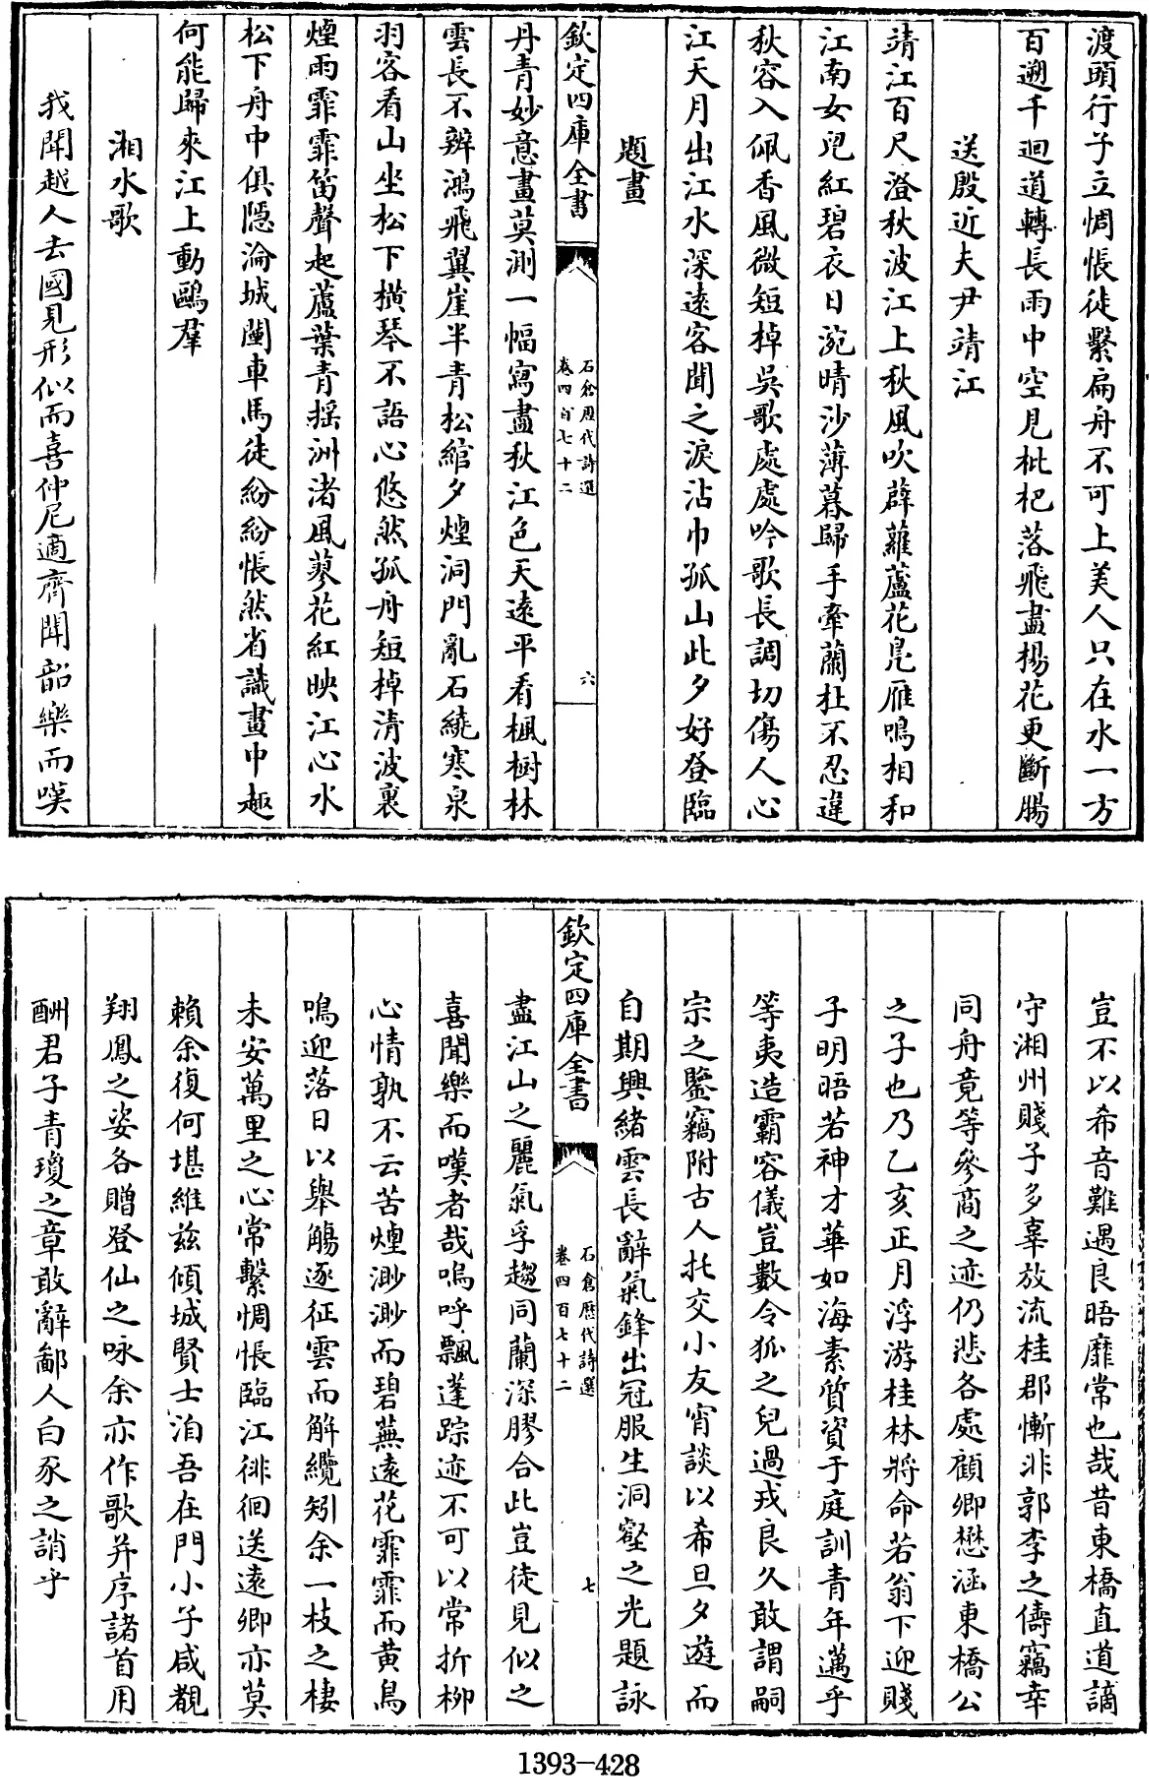 渡頭行子立惆悵徒繫扁舟不可上美人只在水一方
百遡千迴道轉長雨中空見枇杷落飛盡楊花更斷腸
送殷近夫尹靖江
靖江百尺澄秋波江上秋風吹薜蘿蘆花鳬雁鳴相和
江南女兒紅碧衣日泥晴沙薄暮歸手牽蘭杜不忍違
秋容入佩香風微短棹吳歌處處吟歌長調切傷人心
江天月出江水深遠客聞之淚沾巾孤山此夕好登臨
題畫
欽定四庫全書
石倉歷代詩選
卷四百七十二
六
丹青妙意畫莫測一幅寫盡秋江色天遠平看楓樹林
雲長不辨鴻飛翼崖半青松綰夕煙洞門亂石繞寒泉
羽客看山坐松下橫琴不語心悠然孤舟短棹清波裏
煙雨霏霏笛聲起蘆葉青揺洲渚風蓼花紅映江心水
松下舟中俱隱淪城闉車馬徒紛紛悵然省識畫中趣
何能歸來江上動鷗羣
湘水歌
我聞越人去國見形似而喜仲尼適齊聞韶樂而嘆
豈不以希音難遇良晤靡常也哉昔東橋直道謫
守湘州賤子多辜放流桂郡慚非郭李之儔竊幸
同舟竟等參商之迹仍悲各處顧卿懋涵東橋公
之子也乃乙亥正月浮游桂林將命若翁下迎賤
子明晤若神才華如海素質資于庭訓青年邁乎
等夷造霸容儀豈數令狐之兒過戎良久敢謂嗣
宗之鑒竊附古人托交小友宵談以希旦夕遊而
自期興緒雲長辭氣鋒出冠服生洞壑之光題詠
欽定四庫全書
石倉歷代詩選
卷四百七十二
七
盡江山之麗氣孚趨同蘭深膠合此豈徒見似之
喜聞樂而嘆者哉嗚呼飄蓬踪迹不可以常折柳
心情孰不云苦煙渺渺而碧蕪遠花霏霏而黄鳥
鳴迎落日以舉觴逐征雲而解纜矧余一枝之棲
未安萬里之心常繫惆悵臨江徘徊送遠卿亦莫
賴余復何堪維兹傾城賢士洎吾在門小子咸覩
翔鳳之姿各贈登仙之咏余亦作歌并序諸首用
酬君子青瓊之章敢辭鄙人白豕之誚乎
1393-428